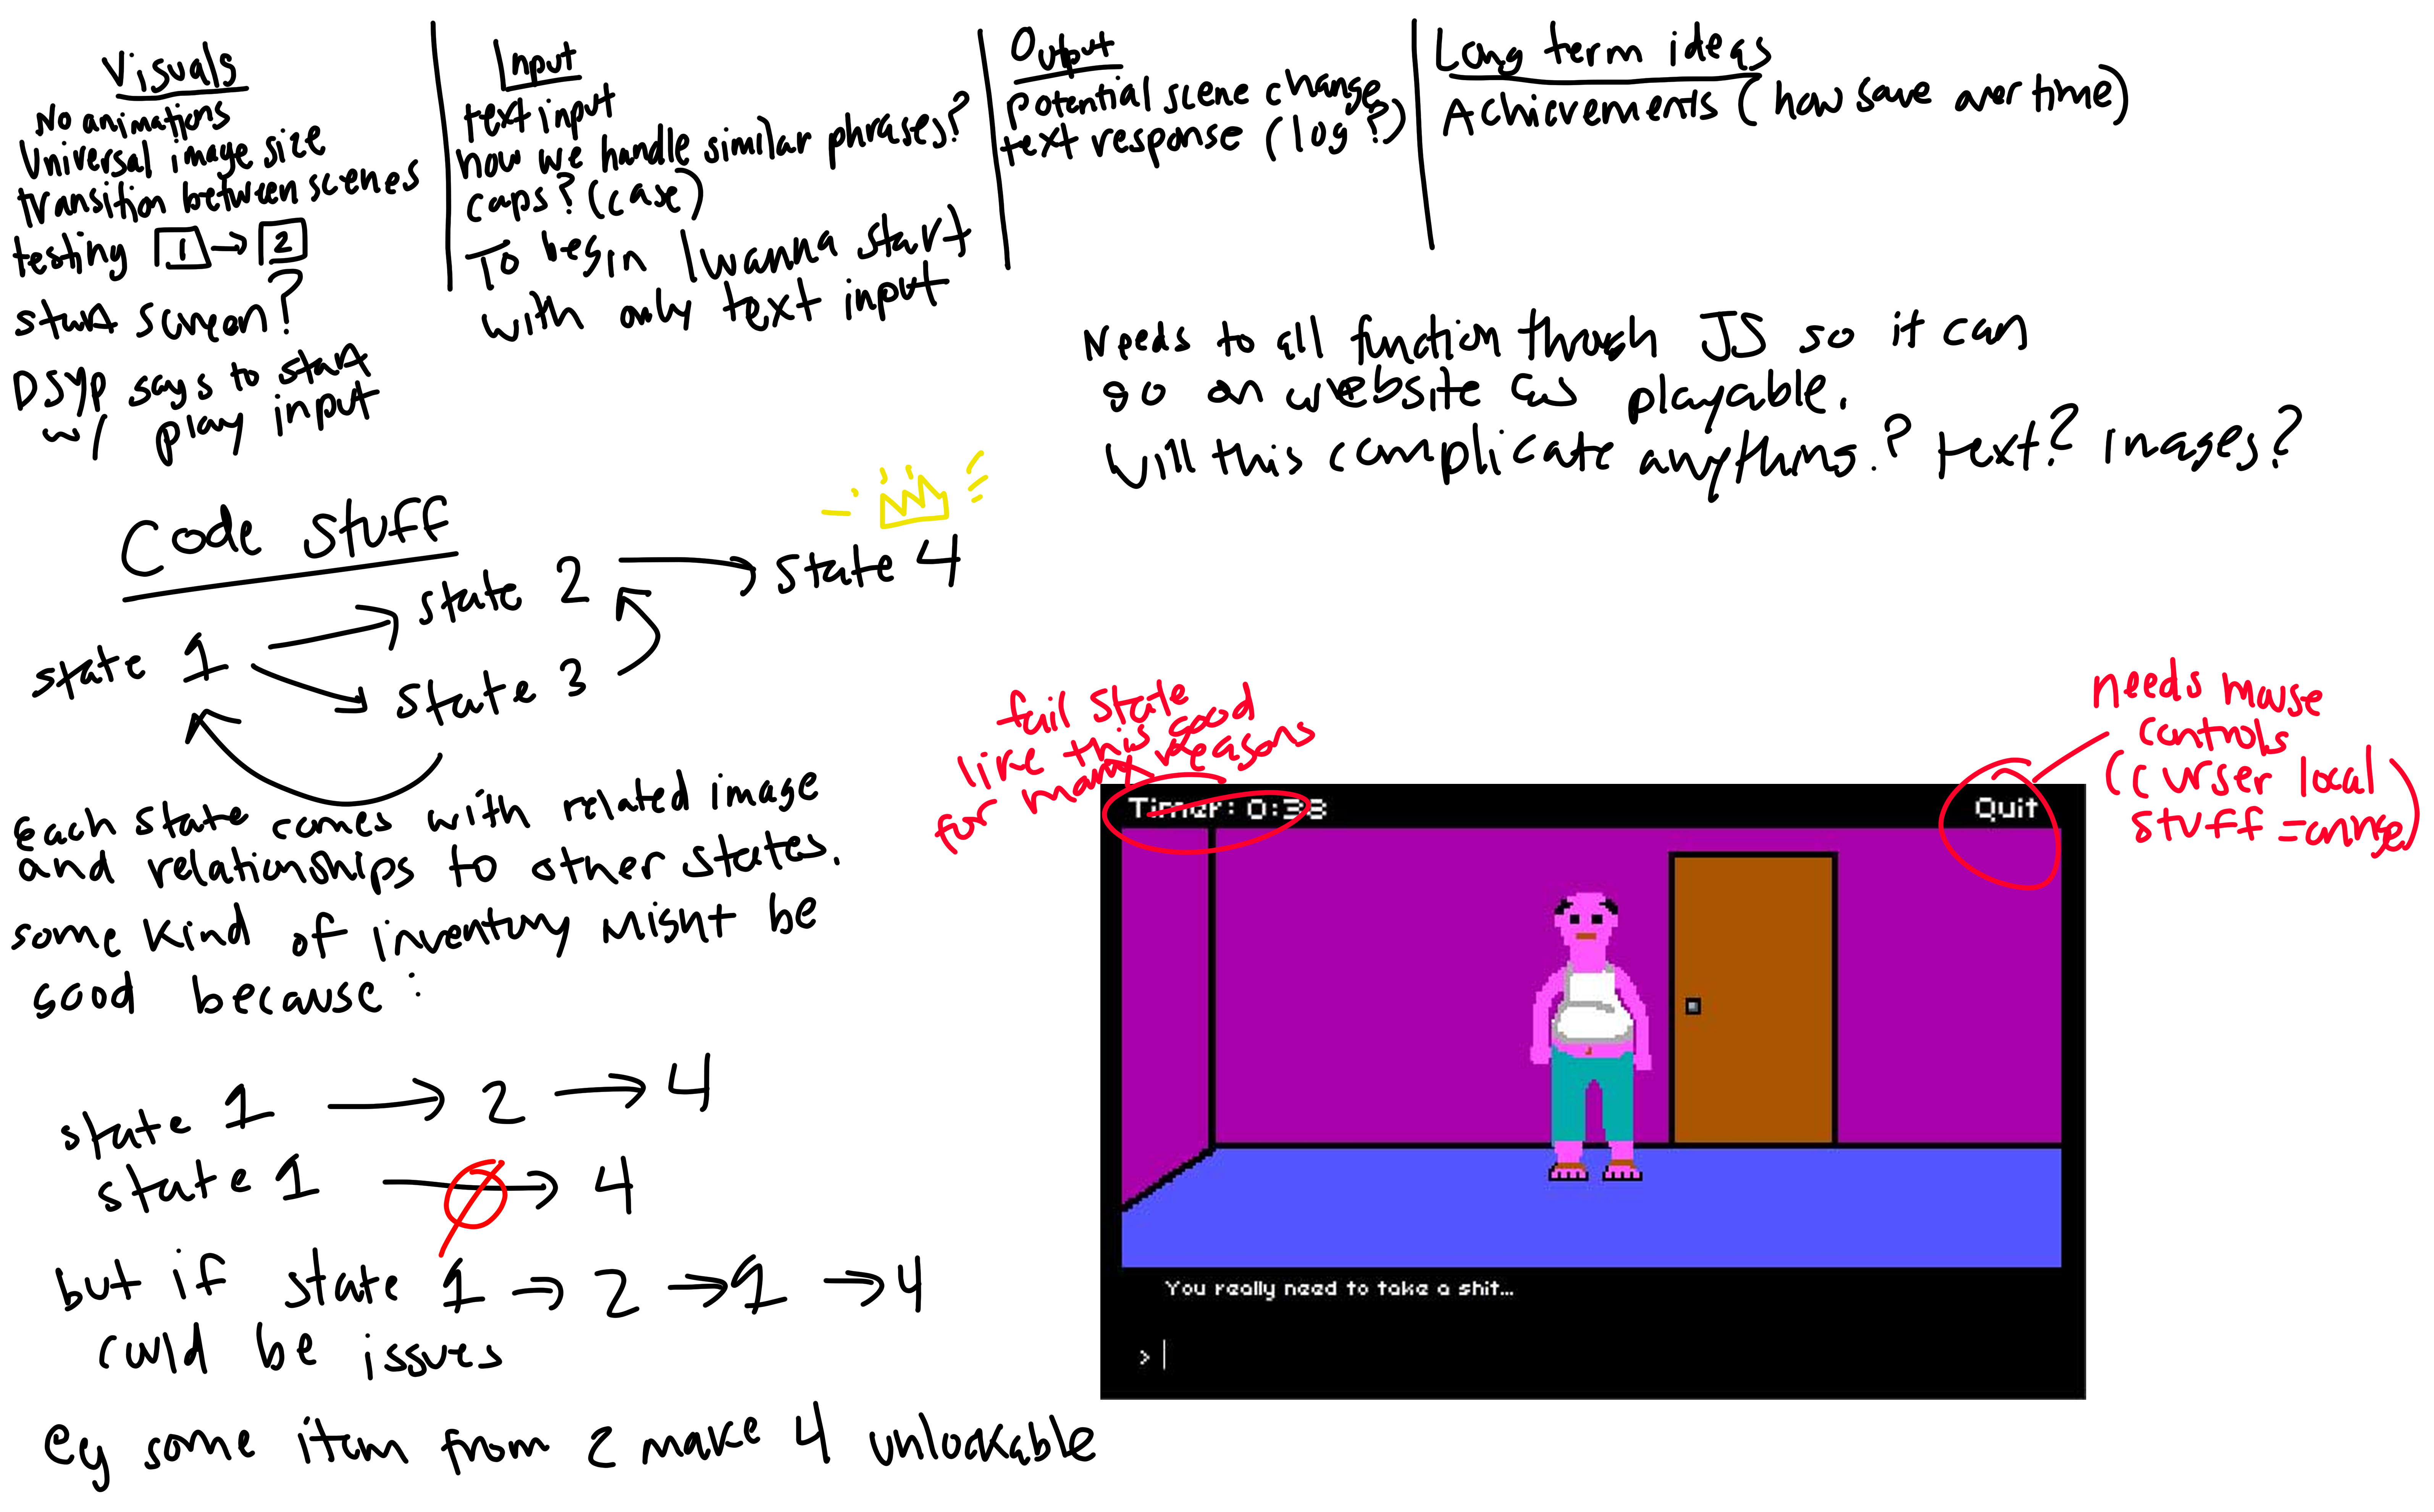 Visuals
No animations
Universal image size
transition between scenes
testing 1 → 2
start screen?
DSYP says to start
w/ play input
Input
text input
how we handle similar phrases?
caps? (case)
To begin I wanna start
with only text input
Output
potential scene change
text response (log?)
Long term ideas
Achievements (how save over time)
Needs to all function through JS so it can
go on website as playable.
Will this complicate anything? text? images?
Code Stuff
state 1
state 2
state 3
state 4
Each state comes with related image
and relationships to other states.
some kind of inventory might be
good because:
state 1 → 2 → 4
state 1 → 4
but if state 1 → 2 → 1 → 4
could be issues
eg some item from 2 make 4 unlockable
fail state
like this good
for many reasons
needs mouse
controls
(curser local
stuff = cringe)
Timer: 0:38
Quit
You really need to take a shit...
>